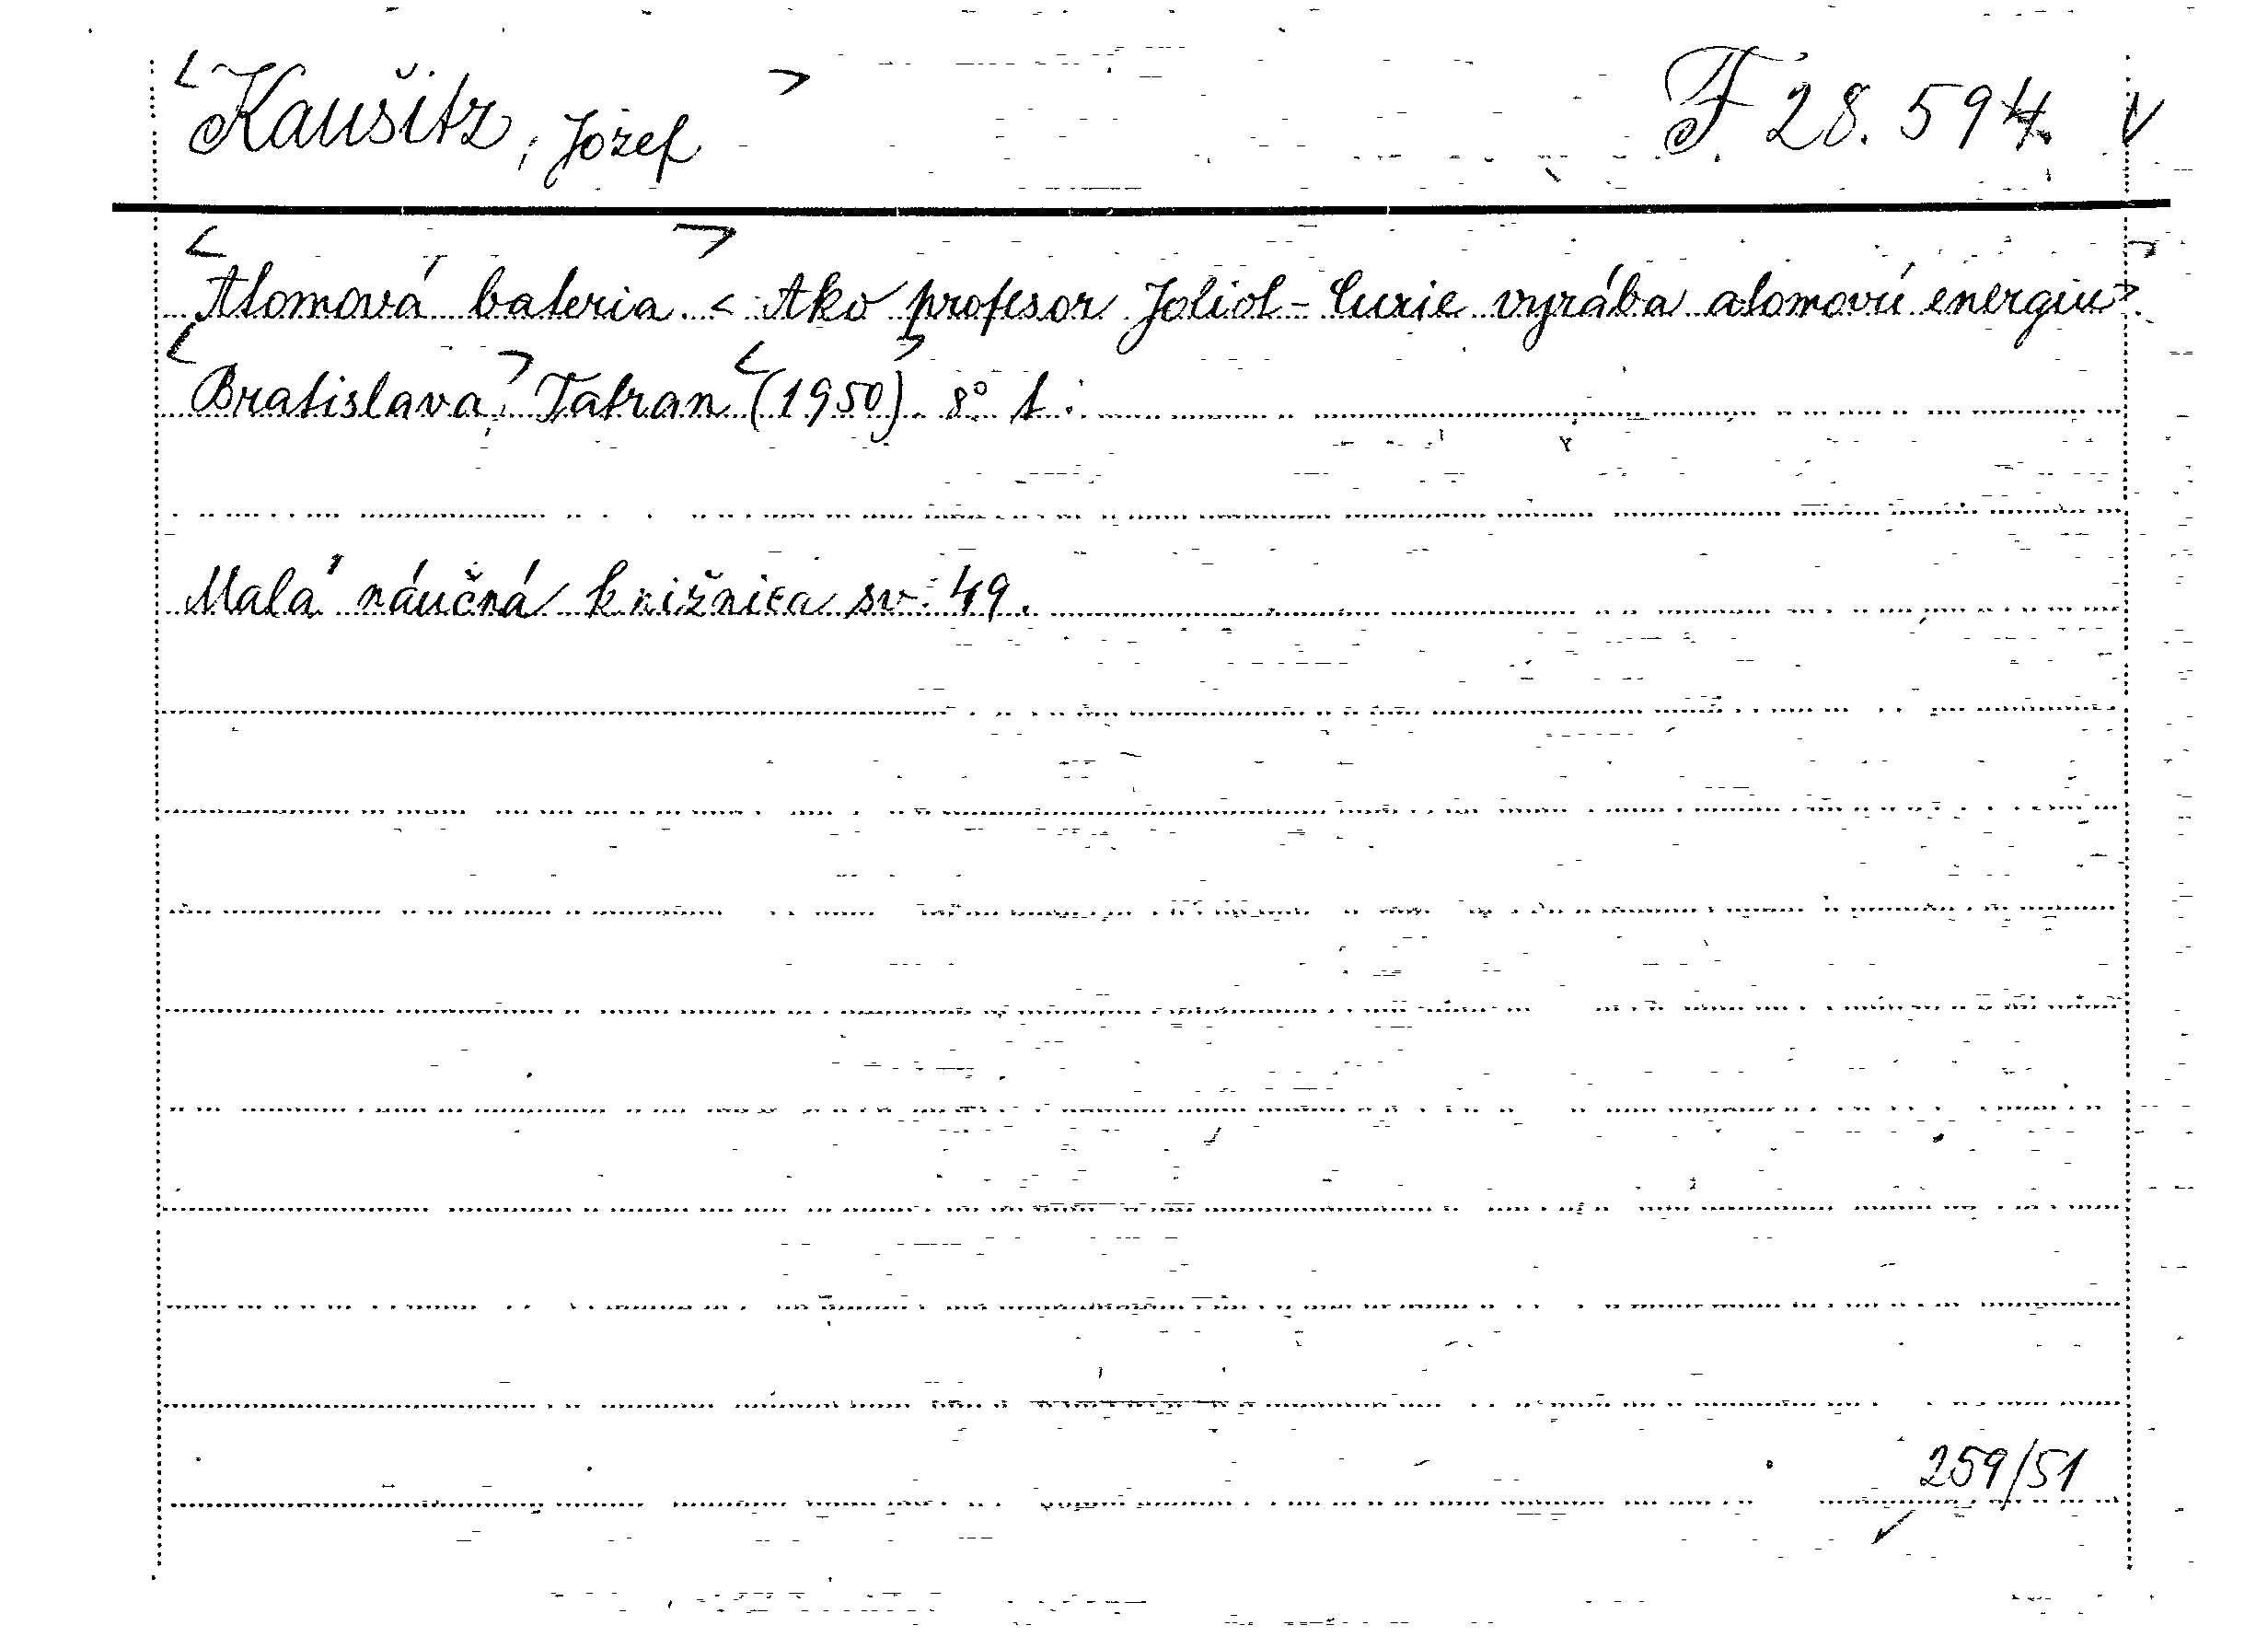 <Kaušitz, Jozef> F 28.594. V
<Atomová bateria.> <Ako profesor Joliot-Curie vyrába atomovú energiu>.
<Bratislava,> Tatran <(1950)>. 8° 1.
Malá náučná knižnica sv. 49.
259/51